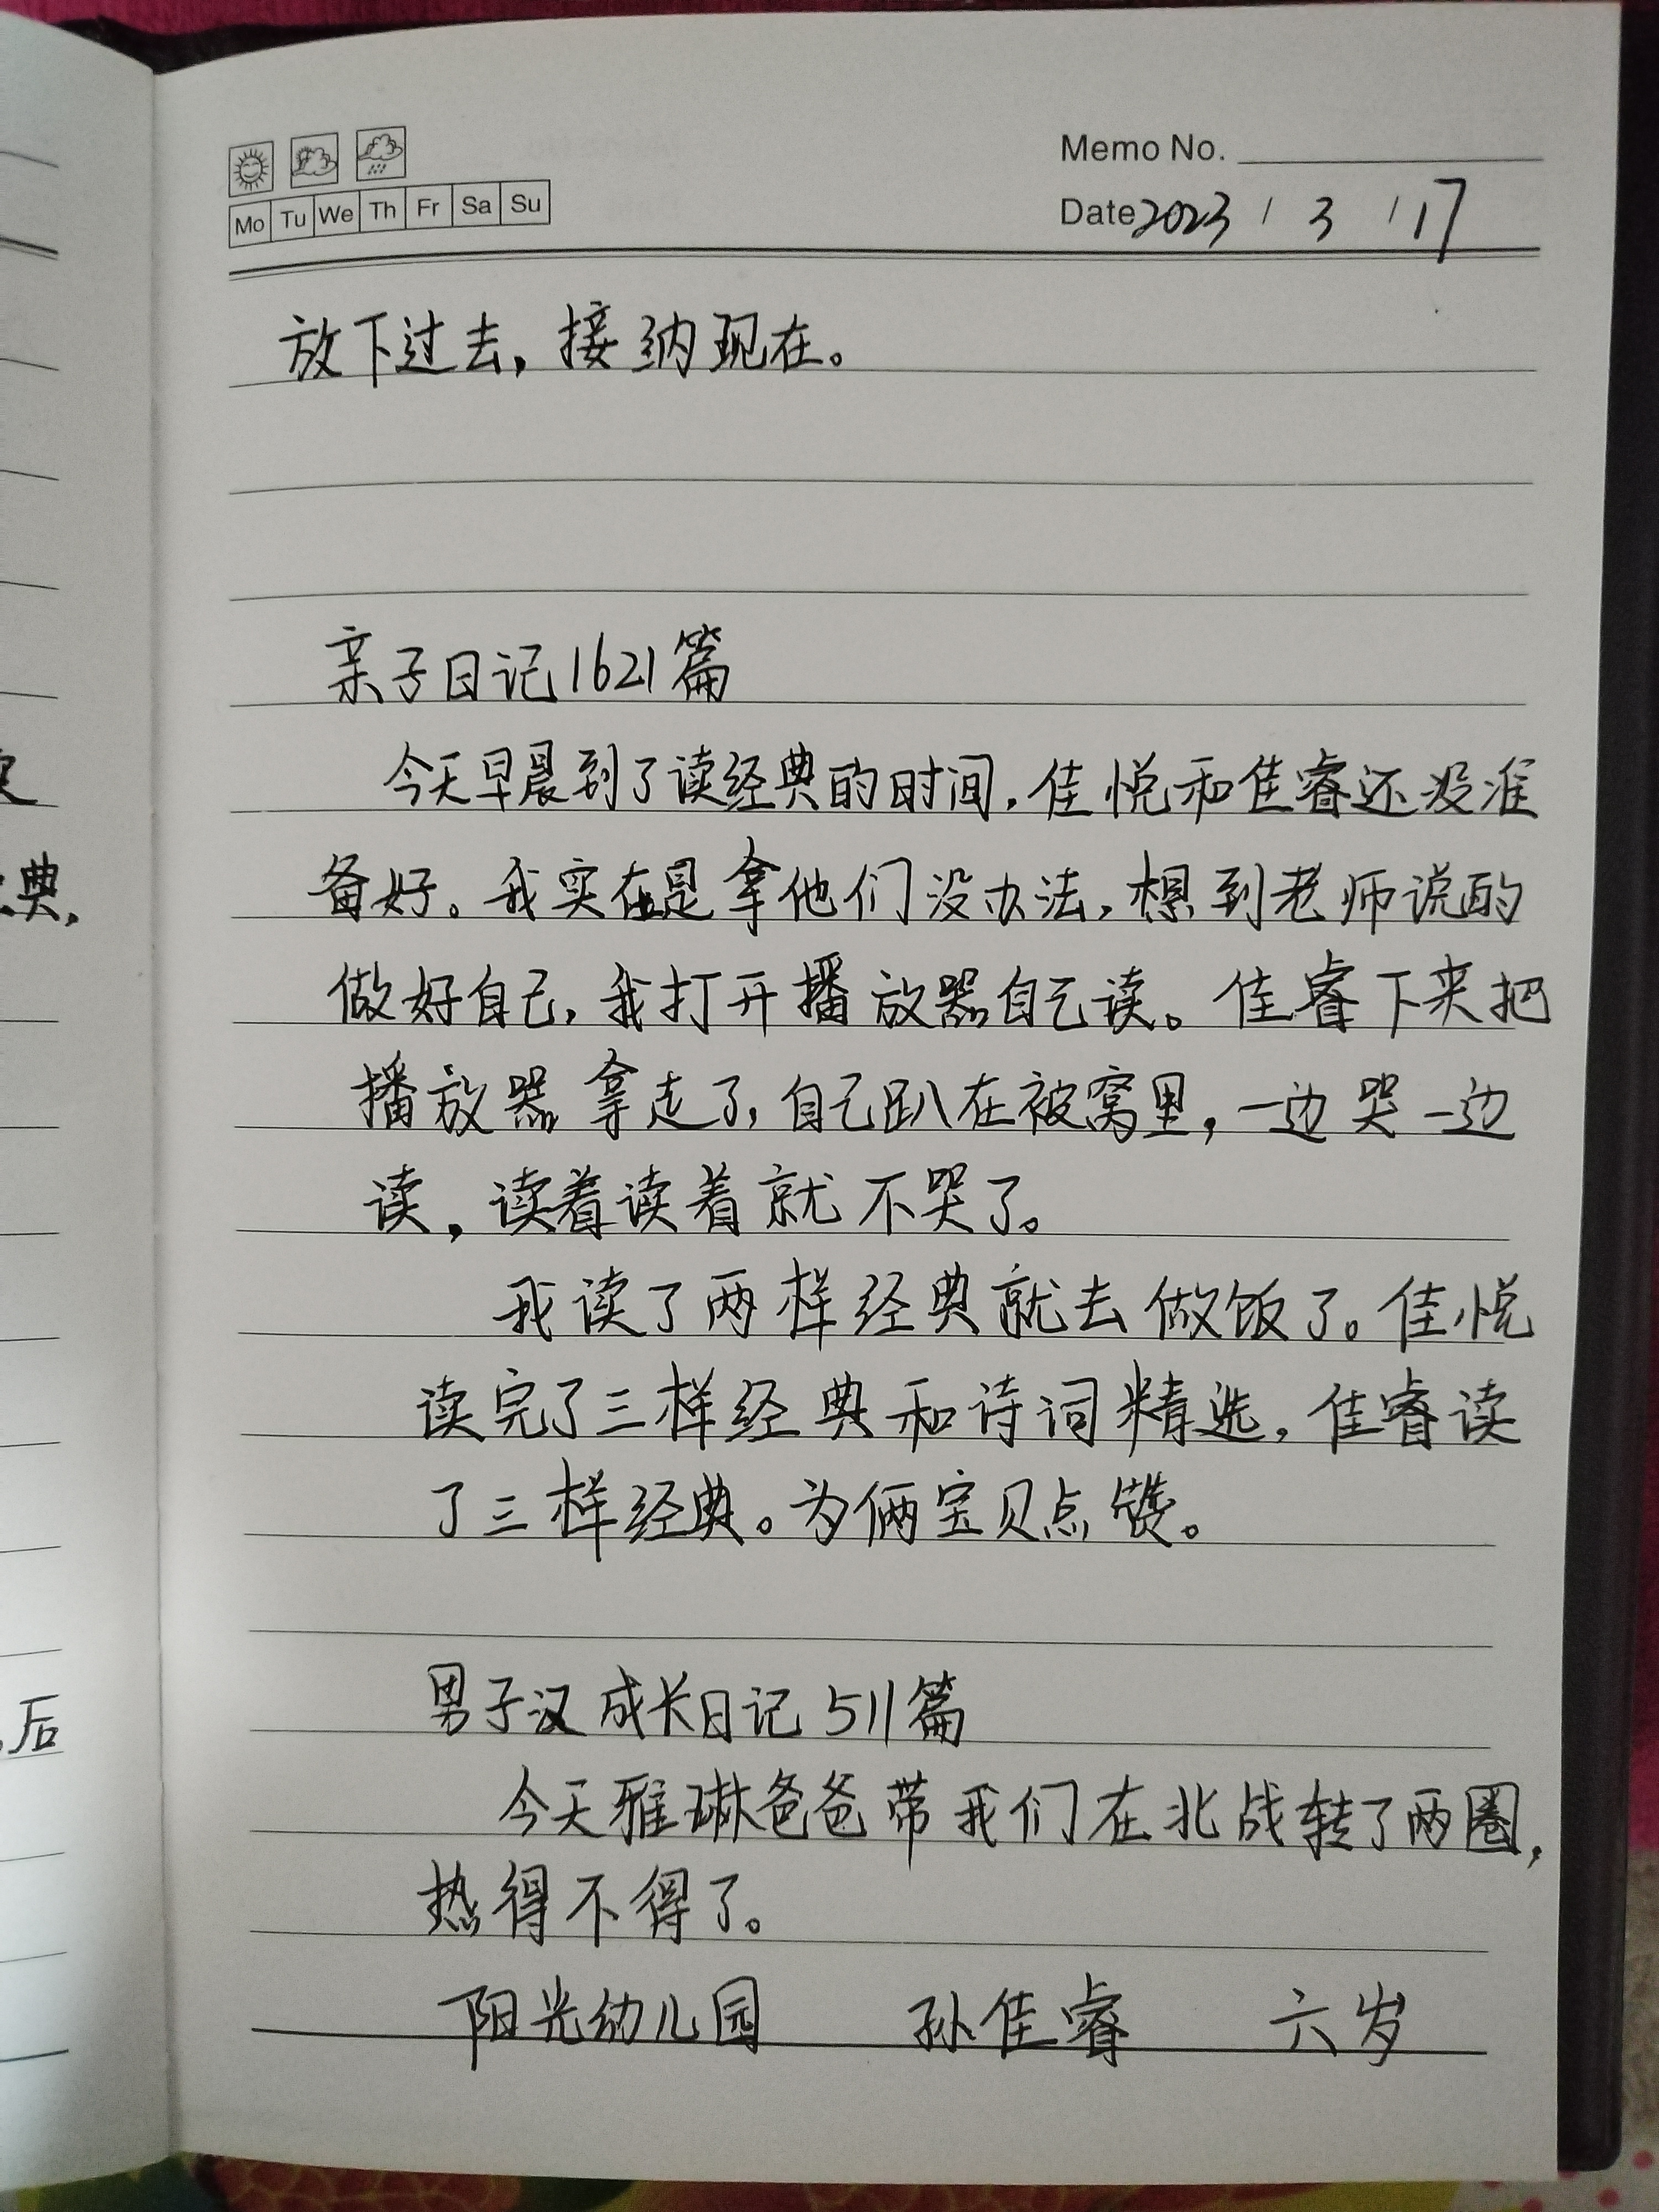 Memo No.
Mo Tu We Th Fr Sa Su
Date 2023 / 3 / 17
放下过去，接纳现在。
亲子日记1621篇
今天早晨到了读经典的时间，佳悦和佳睿还没准
备好。我实在是拿他们没办法，想到老师说的
做好自己，我打开播放器自己读。佳睿下来把
播放器拿走了，自己趴在被窝里，一边哭一边
读，读着读着就不哭了。
我读了两样经典就去做饭了。佳悦
读完了三样经典和诗词精选，佳睿读
了三样经典。为俩宝贝点赞。
男子汉成长日记511篇
今天雅琳爸爸带我们在北战转了两圈，
热得不得了。
阳光幼儿园 孙佳睿 六岁
典，
后